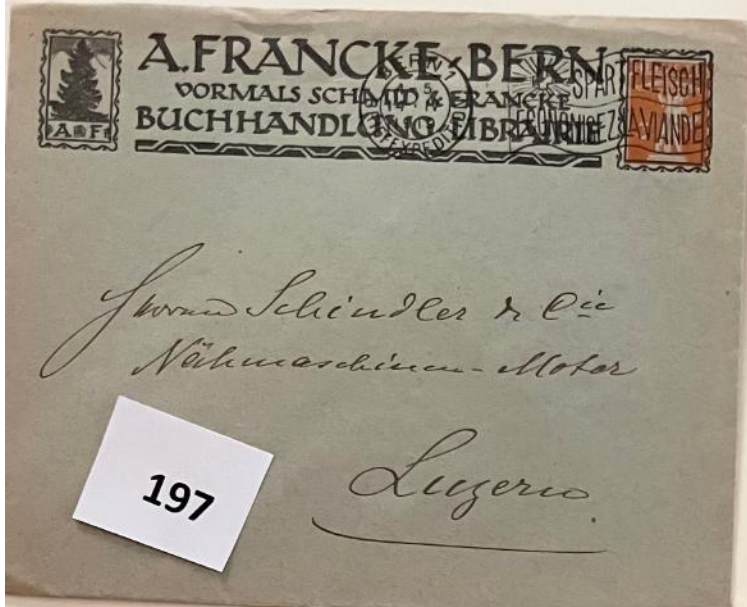 A. FRANCKE · BERN
VORMALS SCHMID & FRANCKE
BUCHHANDLUNG LIBRAIRIE
A F
BERN 1
BRIEFEXPEDITION
SPART FLEISCH
ECONOMISEZ LA VIANDE
Herren Schindler & Cie
Nähmaschinen-Motor
Luzern.
197